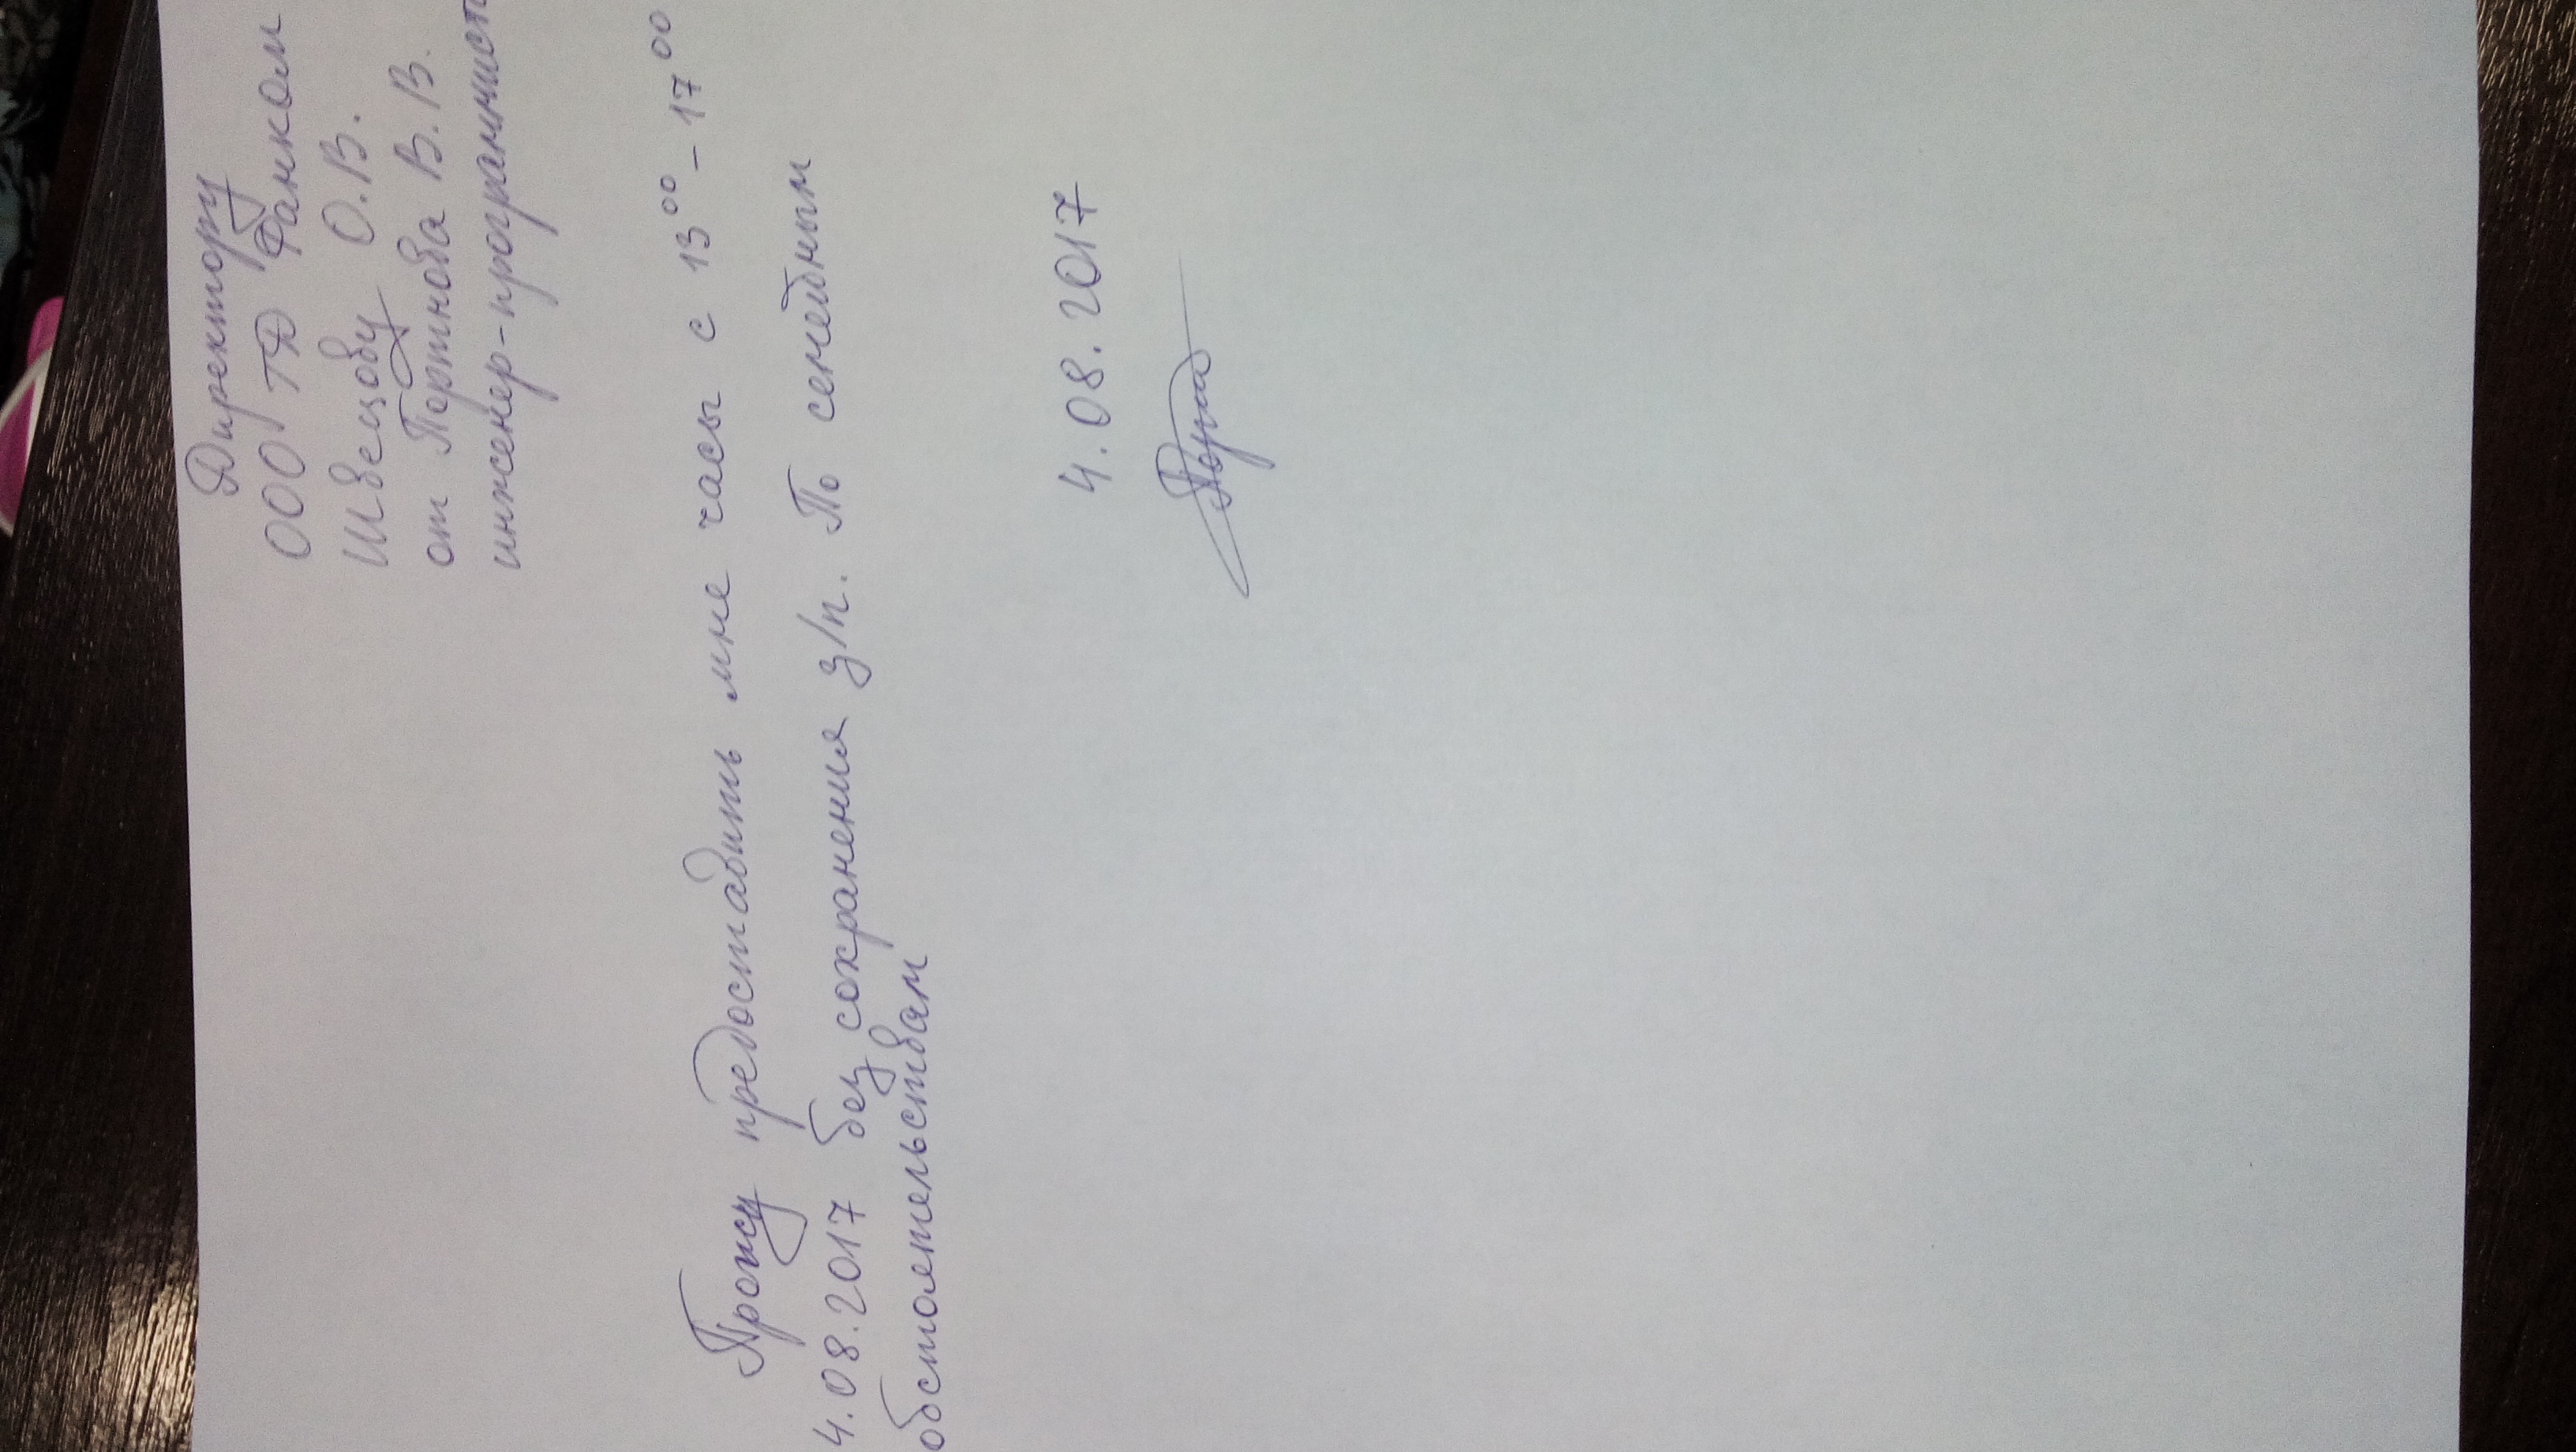 Директору
ООО ТД Фанком
Швецову О.В.
от Портнова В.В.
инженер-программист
Прошу предоставить мне часы с 13⁰⁰ – 17⁰⁰
4.08.2017 без сохранения з/п. По семейным
обстоятельствам
4.08.2017